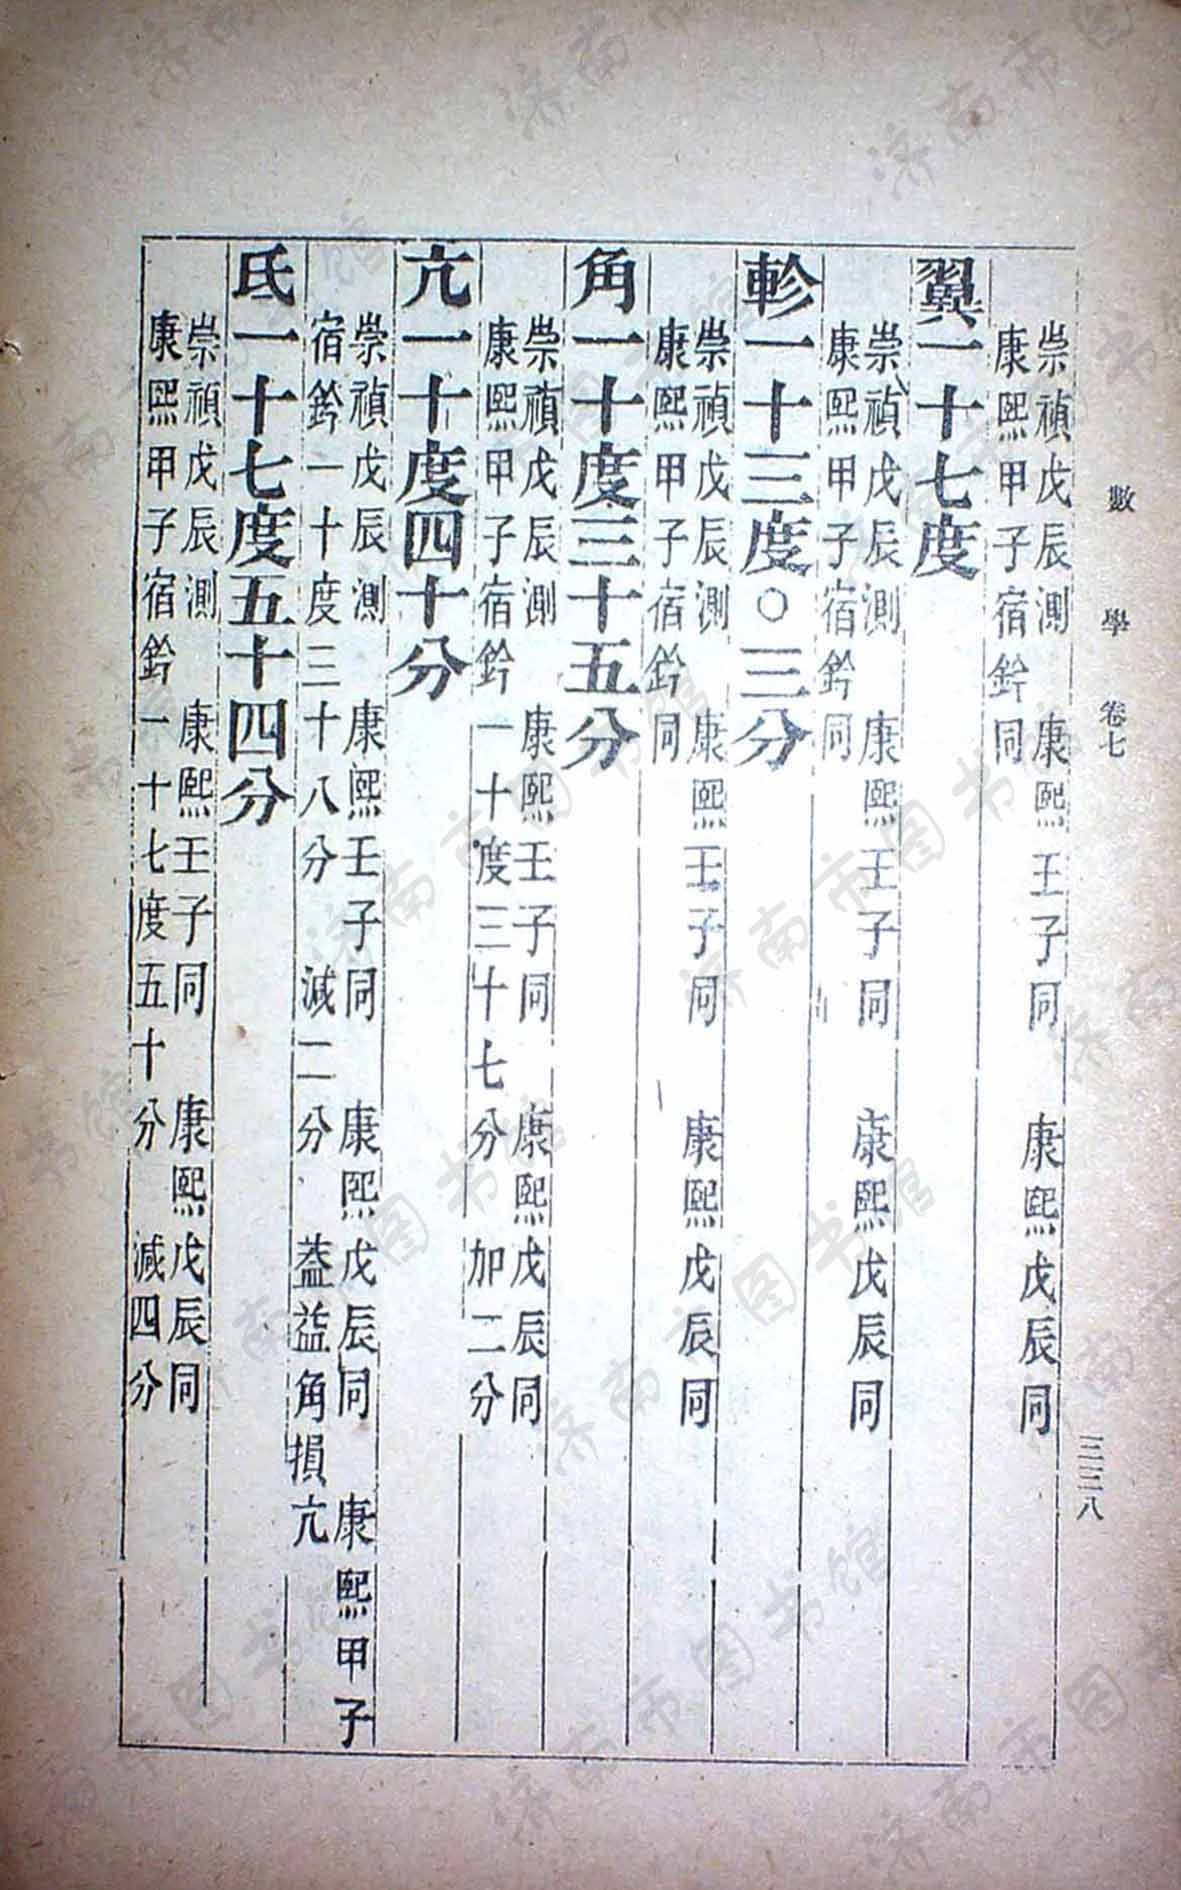 數學 卷七
三二八
崇禎戊辰測 康熙壬子同 康熙戊辰同
康熙甲子宿鈐同
翼一十七度
崇禎戊辰測 康熙壬子同 康熙戊辰同
康熙甲子宿鈐同
軫一十三度○三分
崇禎戊辰測 康熙壬子同 康熙戊辰同
康熙甲子宿鈐同
角一十度三十五分
崇禎戊辰測 康熙壬子同 康熙戊辰同
康熙甲子宿鈐一十度三十七分 加二分
亢一十度四十分
崇禎戊辰測 康熙壬子同 康熙戊辰同 康熙甲子
宿鈐一十度三十八分 減二分 葢益角損亢
氐一十七度五十四分
崇禎戊辰測 康熙壬子同 康熙戊辰同
康熙甲子宿鈐一十七度五十分 減四分
济南市图书馆